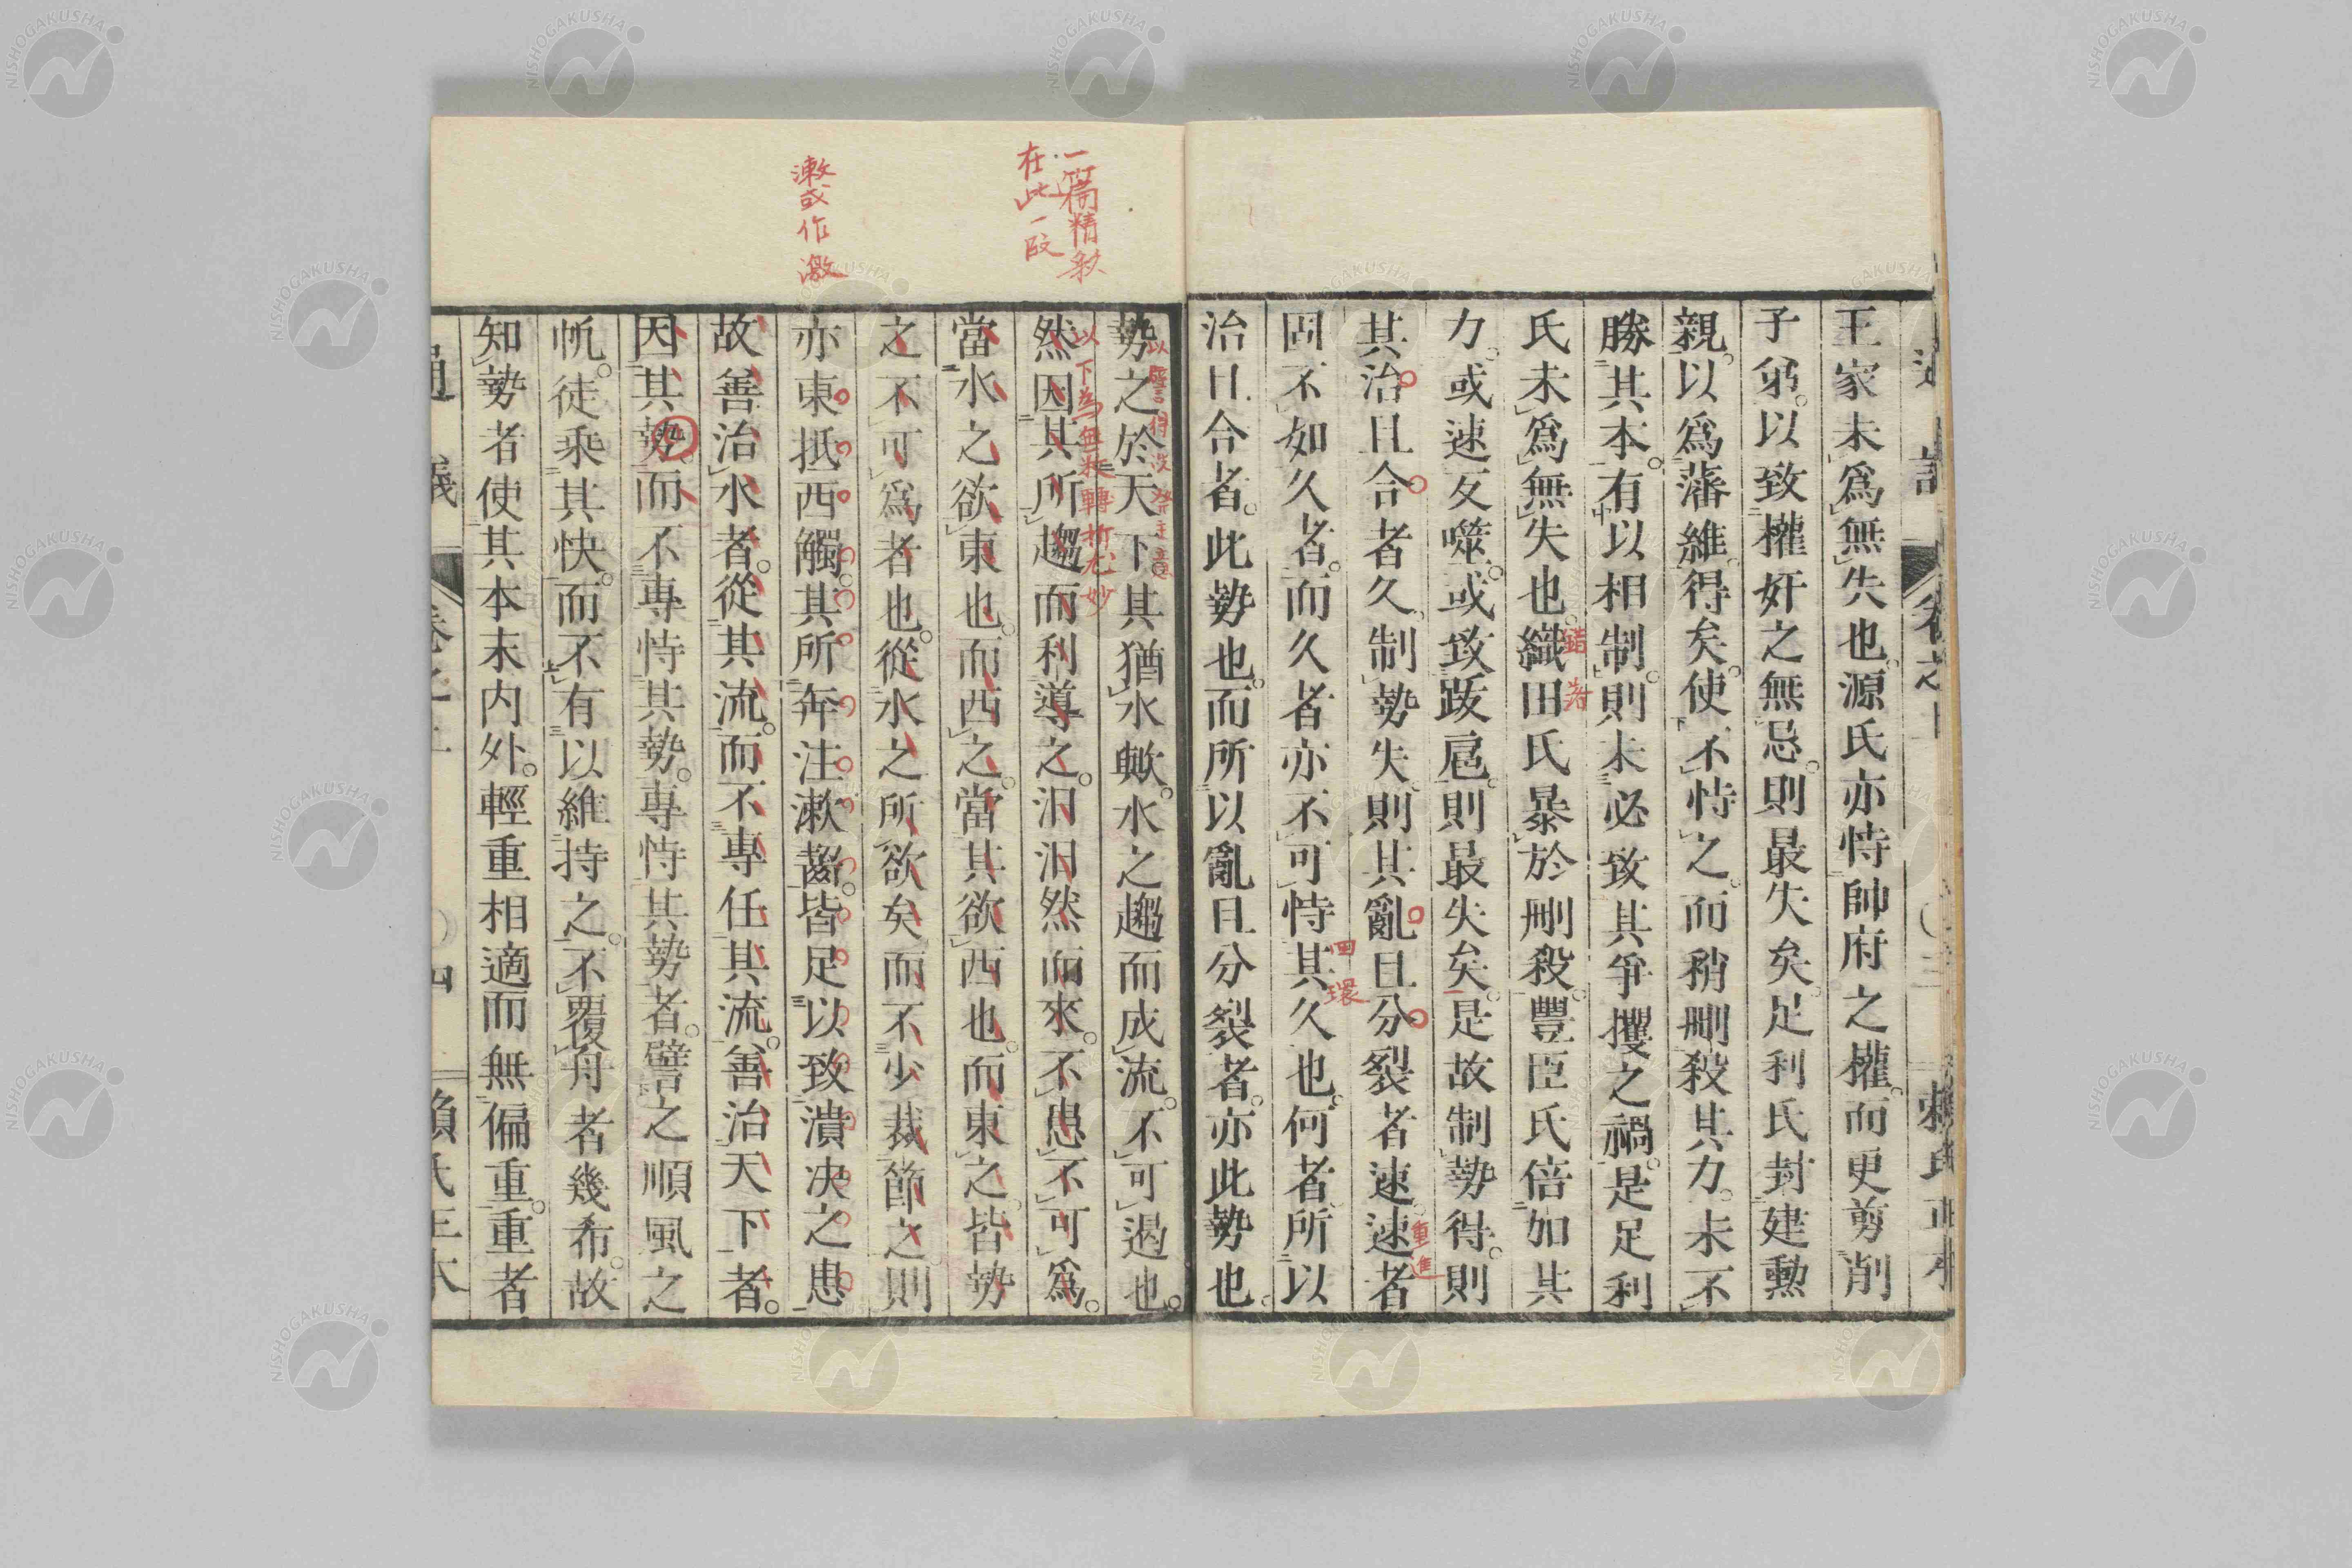 王家未爲無失也。源氏亦恃帥府之權。而更剪削
子弟。以致權奸之無忌。則最失矣。足利氏封建勲
親。以爲藩維。得矣。使不恃之。而稍刪殺其力。未不
勝其本。有以相制。則未必致其爭攫之禍。是足利
氏未爲無失也。織田氏暴於刪殺。豐臣氏倍加其
力。或速反噬。或致跋扈。則最失矣。是故制勢得。則
其治且合者久。制勢失、則其亂且分裂者速。速者
固不如久者。而久者亦不可恃其久也。何者、所以
治且合者。此勢也。而所以亂且分裂者。亦此勢也。
錯
對
重進
回環
一篇精彩
在此一段
漱或作激
勢之於天下。其猶水歟。水之趨而成流。不可遏也。
然因其所趨而利導之。汨汨然而來。不患不可爲。
當水之欲東也。而西之。當其欲西也。而東之。皆勢
之不可爲者也。從水之所欲矣而不少裁節之。則
亦東抵西觸其所奔注漱齧。皆足以致潰决之患
故善治水者。從其流。而不專任其流。善治天下者。
因其勢。而不專恃其勢。專恃其勢者。譬之順風之
帆。徒乘其快。而不有以維持之。不覆舟者幾希。故
知勢者使其本末内外。輕重相適而無偏重。重者
以下為無數轉折尤妙
通議
卷之一
四
頼氏正本
NISHOGAKUSHA